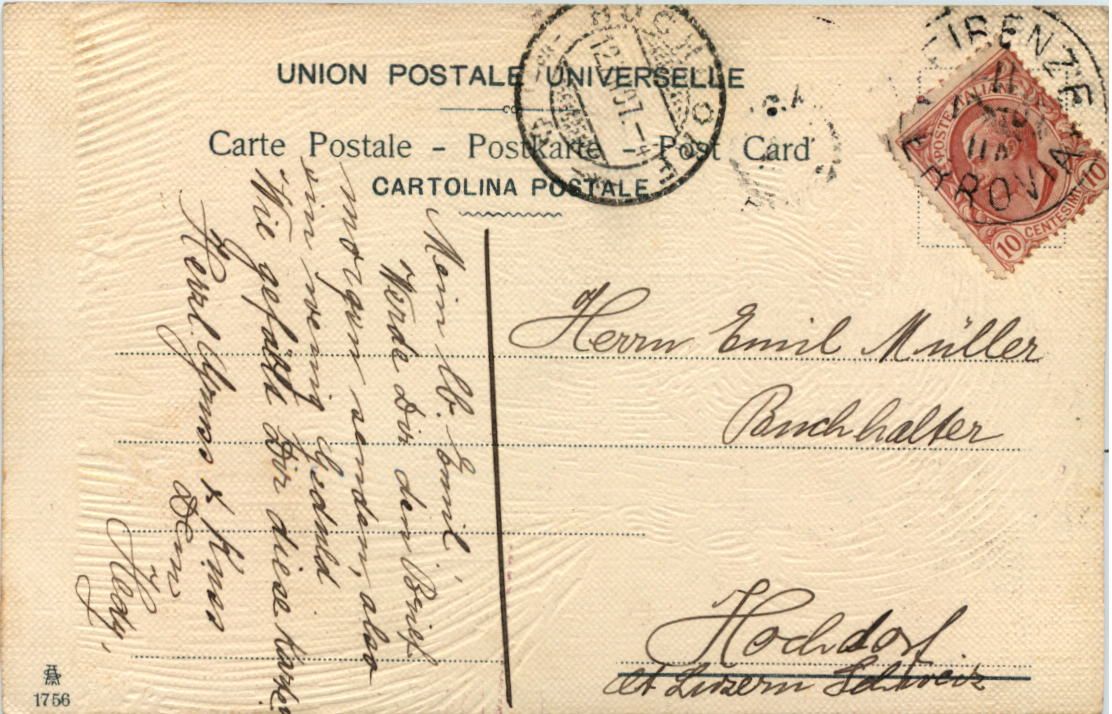 UNION POSTALE UNIVERSELLE
Carte Postale - Postkarte - Post Card
CARTOLINA POSTALE
HOCHDORF
12. 07. - 4
FIRENZE
FERROVIA
POSTE ITALIANE
10 CENTESIMI 10
Herrn Emil Müller
Buchhalter
Hochdorf
Ct Luzern Schweiz
Mein lb. Emil
Werde Dir den Brief
morgen senden, also
ein wenig Geduld
Wie gefällt Dir diese Karte?
Herzl. Gruss & Kuss
Dein
Hedy.
1756